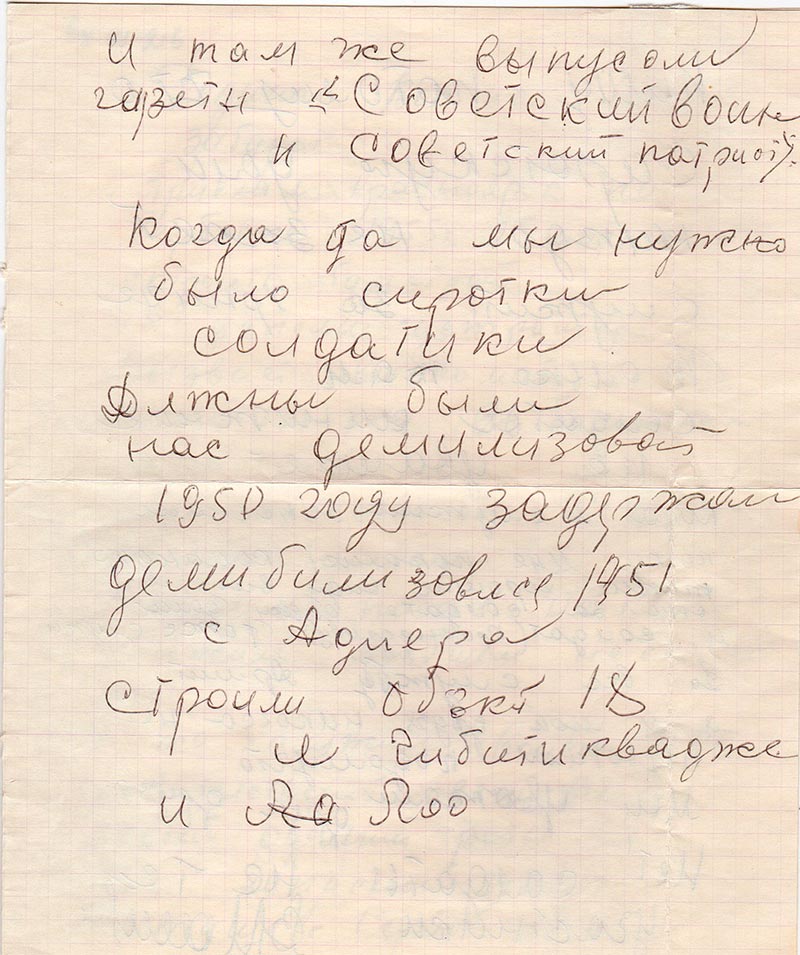 И там же выпусоли
газети "Советский воин
и советский патриоту".
Когда та мы нужно
было сиротки
солдатики
Длжны были
нас демилизовой
1950 году задержали
демибилизовлся 1951
с Адлера
строили обэкт 18
и Чибитиквадже
и